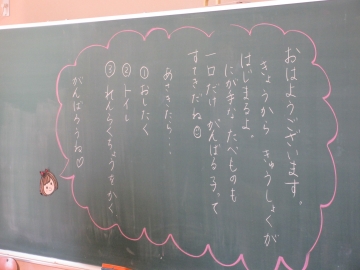 おはようございます。
きょうから きゅうしょくが
はじまるよ。
にが手な たべものも
一口だけ がんばるって
すてきだね☺
あさきたら…
①おしたく
②トイレ
③れんらくちょうをかく。
がんばろうね♡